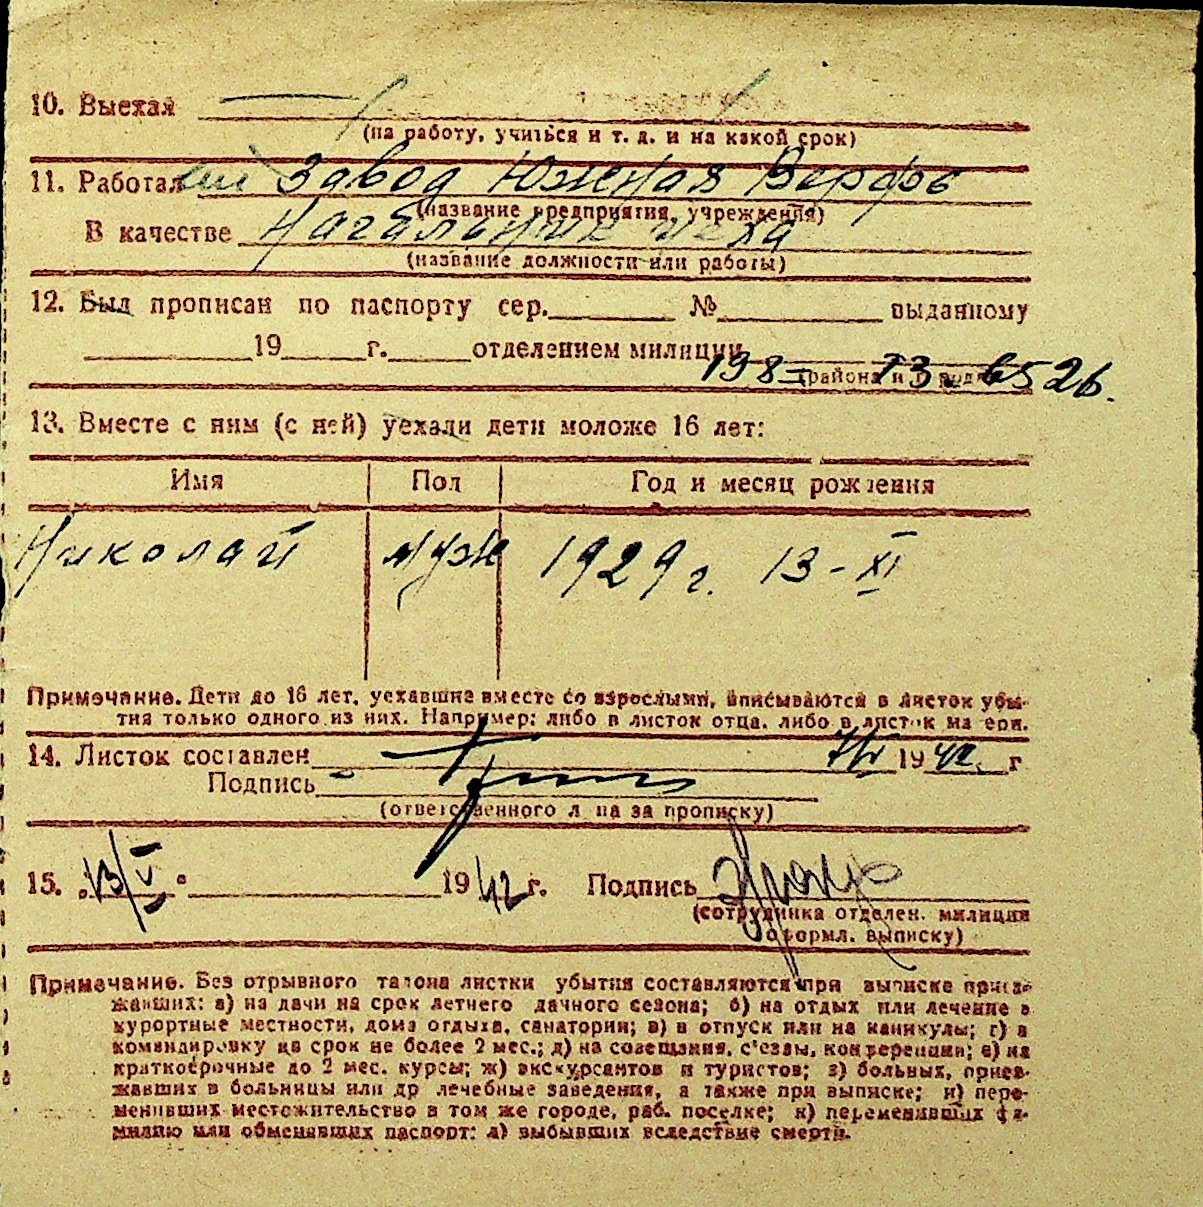 10. Выехал
(на работу, учиться и т. д. и на какой срок)
11. Работал Завод Южная Верфь
(название предприятия, учреждения)
В качестве Начальник цеха
(название должности или работы)
12. Был прописан по паспорту сер. № выданному
19 г. отделением милиции
(района и города)
13. Вместе с ним (с ней) уехали дети моложе 16 лет:
Имя Пол Год и месяц рождения
Николай муж 1929 г. 13-XI
Примечание. Дети до 16 лет, уехавшие вместе со взрослыми, вписываются в листок убы-
тия только одного из них. Например: либо в листок отца, либо в листок матери.
14. Листок составлен 19 42 г
Подпись
(ответственного лица за прописку)
15. „13/V“ 19 42 г. Подпись
(сотрудника отделен. милиции
оформл. выписку)
Примечание. Без отрывного талона листки убытия составляются при выписке приез-
жавших: а) на дачи на срок летнего дачного сезона; б) на отдых или лечение в
курортные местности, дома отдыха, санатории; в) в отпуск или на каникулы; г) в
командировку на срок не более 2 мес.; д) на совещания, с'езды, конференции; е) на
краткосрочные до 2 мес. курсы; ж) экскурсантов и туристов; з) больных, приез-
жавших в больницы или др лечебные заведения, а также при выписке; и) пере-
менивших местожительство в том же городе, раб. поселке; к) переменивших фа-
милию или обменявших паспорт; л) выбывших вследствие смерти.